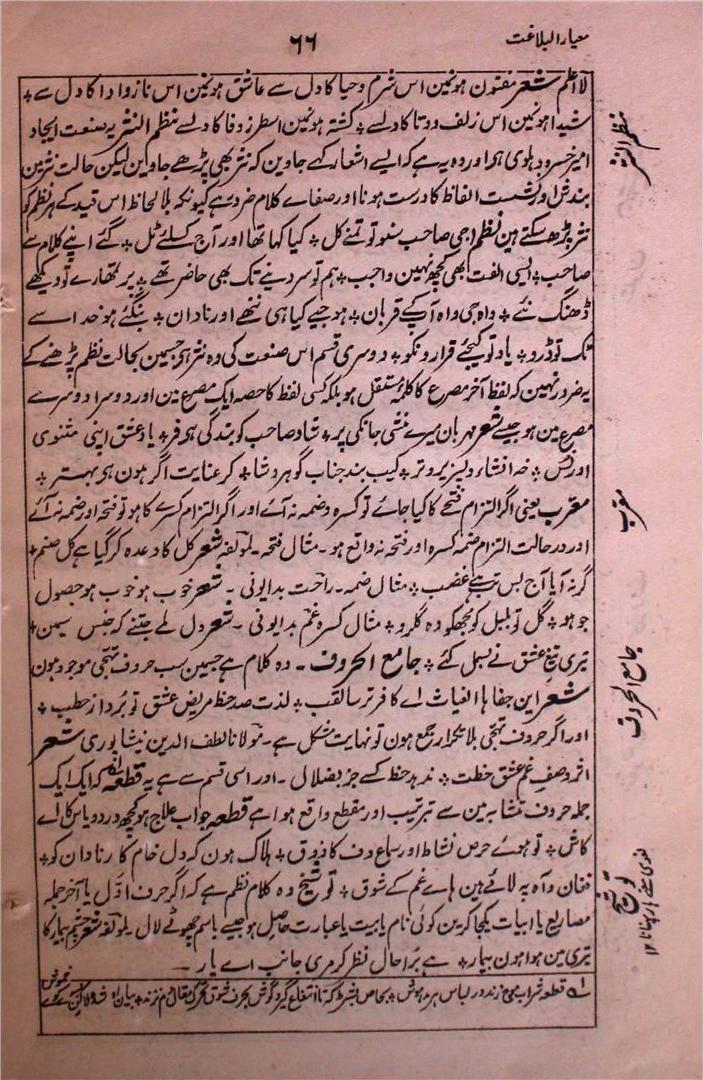 معیار البلاغت
۶۶
لا اعلم شعر مفتون ہونمین اس شرم و حیا کا دل سے عاشق ہونمین اس ناز و ادا کا دل سے ٭
شیدا ہونمین اس زلف دوتا کا دلسے ٭ کشتہ ہونمین اسطرز وفا کا دلسے نظم النثر یہ صنعت ایجاد
امیر خسرو دہلوی ہی اور وہ یہ ہے کہ ایسے اشعار کہے جاوین کہ نثر بھی پڑھے جاوین لیکن حالت نثر مین
بندش اور نشست الفاظ کا درست ہونا اور صفاے کلام ضرور ہے کیونکہ بلا لحاظ اس قید کے ہر نظم کو
نثر پڑھ سکتے ہین نظم اجی صاحب سنو تو تمنے کل ٭ کیا کہا تھا اور آج کسلئے ٹل ٭ گئے اپنے کلام سے
صاحب ٭ ایسی الفت بھی کچھ نہین واجب ٭ ہم تو سر دینے تک بھی حاضر تھے ٭ پر تمھارے تو دیکھے
ڈھنگ نئے ٭ واہ جی واہ آپکے قربان ٭ ہو جیسے کیا ہی ننھے اور نادان ٭ بنگئے ہو خدا سے
تک تو ڈرو ٭ یاد تو کیجے قرار ونکو ٭ دوسری قسم اس صنعت کی وہ نثر ہی جسمین بحالت نظم پڑھنے کے
یہ ضرور نہین کہ لفظ آخر مصرع کا کلمہ مستقل ہو بلکہ کسی لفظ کا حصہ ایک مصرع مین اور دوسرا دوسرے
مصرع مین ہو جیسے شعر مہربان میرے منشی جانکی پر ٭ شاد صاحب کو بندگی ہو فر ٭ یاد عشق اپنی مثنوی
اور نس ٭ خہ انشاء دلپزیر و تر ٭ کیب بند جناب گوہر شا ٭ کر عنایت اگر ہون ہو بہتر ٭
معرب یعنی اگر التزام فتحے کا کیا جائے تو کسرہ و ضمہ نہ آئے اور اگر التزام کسرے کا ہو تو فتحہ اور ضمہ نہ آئے
اور در حالت التزام ضمہ کسرہ اور فتحہ نہ واقع ہو ۔ مثال فتحہ ۔ لمولفہ شعر کل کا وعدہ کر گیا ہے کل صنم ٭
گر نہ آیا آج بس تب ہے غضب ٭ مثال ضمہ ۔ راحت بدایونی ۔ شعر خوب ہو خوب ہو حصول
جو ہو ٭ گل تو بلبل کو مجھکو وہ گلرو ٭ مثال کسرہ غم بدایونی ۔ شعر دل ملے جتنے کہ جنبس سیمین ٭
تیری تیغ عشق نے بسمل کئے ٭ جامع الحروف ۔ وہ کلام ہے جسمین سب حروف تہجی موجود ہون
شعر این جفاہا الغیاث اے کافر ترسا لقب ٭ لذت صد حظ مریض عشق تو بُرد از حطب ٭
اور اگر حروف تہجی بلا تکرار جمع ہون تو نہایت مشکل ہے ۔ مولانا لطف الدین نیشاپوری شعر
اثر وصف غم عشق خطت ٭ ندہد حظ کسے جز بضلال ۔ اور اسی قسم سے ہے یہ قطعہ کہ ایک ایک
جملہ حروف متشابہ مین سے بترتیب اور مقطع واقع ہوا ہے قطعہ جواب علاج ہو کچھ درد و یاس کا اے
کاش ٭ تو ہوئے حرص نشاط اور سماع دف کا ذوق ٭ ہلاک ہون کہ دل خام کار نادان کو ٭
فغان و آہ یہ لائے ہین ہاے غم کے شوق ٭ توشیح وہ کلام نظم ہے کہ اگر حرف اوّل یا آخر جملہ
مصاریع یا ابیات یکجا کرین کوئی نام یا بیت یا عبارت حاصل ہو جیسے باسم چھوٹے لال ۔ لمولفہ شعر چشم بیمار کا
تیری مین ہوا ہون بیمار ٭ ہے بُرا حال نظر کر مری جانب اے یار ۔
نظم النثر
معرب
جامع الحروف
توشیح